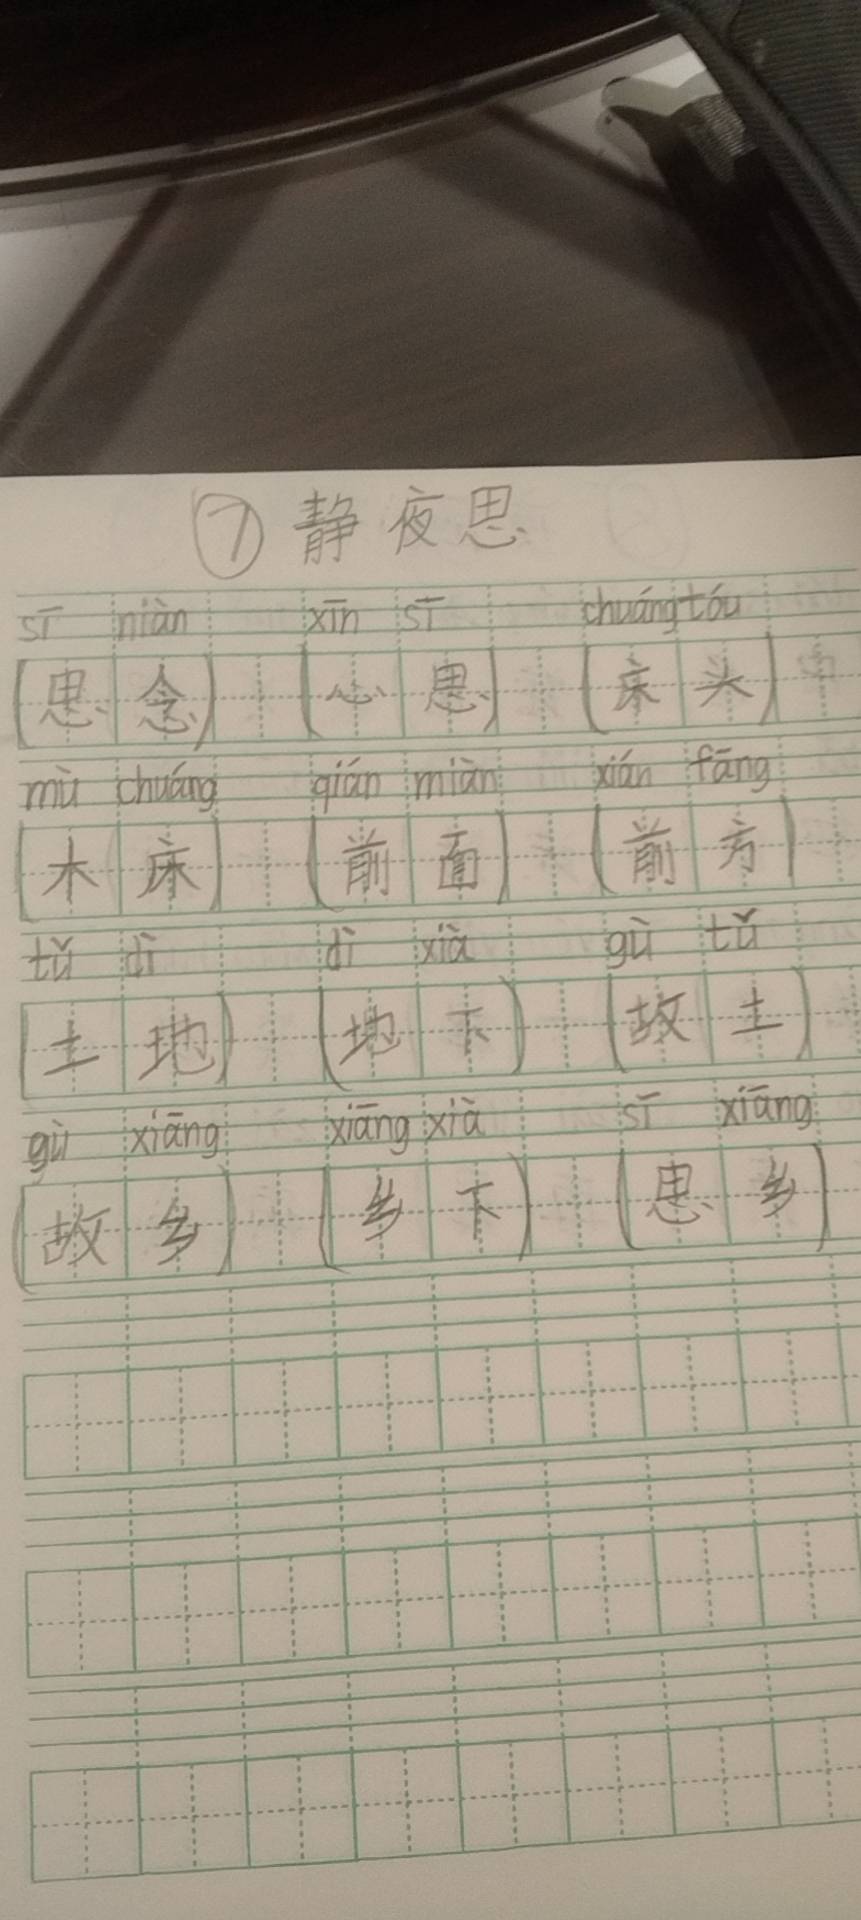 ⑦静夜思
sī niàn xīn sī chuáng tóu
(思念) (心思) (床头)
mù chuáng qián miàn xián fāng
(木床) (前面) (前方)
tǔ dì dì xià gù tǔ
(土地) (地下) (故土)
gù xiāng xiāng xià sī xiāng
(故乡) (乡下) (思乡)